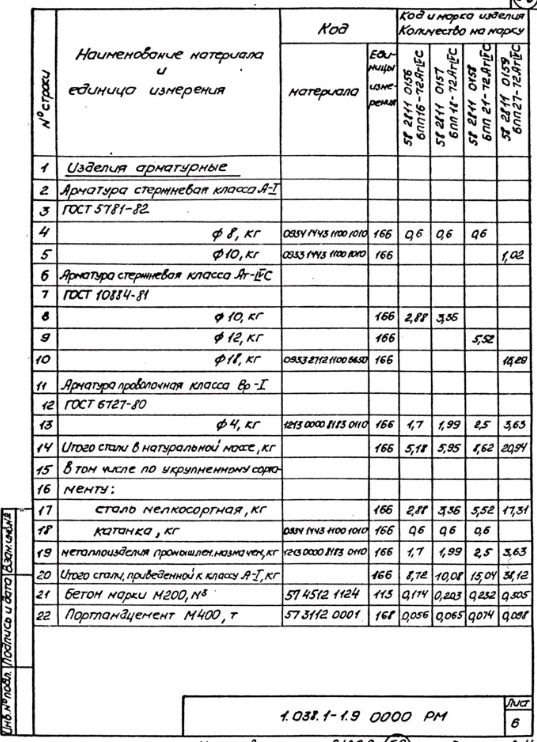 № строки
Наименование материала
и
единица измерения
Код
материала
Единицы измерения
Код и марка изделия
Количество на марку
58 2811 0156 6ПП16-72.АтIVС
58 2811 0157 6ПП 18-72АтIVС
58 2811 0158 6ПП 21-72.АтIVС
58 2811 0159 6ПП27-72.АтIVС
1 Изделия арматурные
2 Арматура стержневая класса А-I
3 ГОСТ 5781-82
4 ф 8, кг 166 0,6 0,6 0,6
5 ф 10, кг 166 1,02
6 Арматура стержневая класса Ат-IVС
7 ГОСТ 10884-81
8 ф 10, кг 166 2,88 3,36
9 ф 12, кг 166 5,52
10 ф 18, кг 166
11 Арматура проволочная класса Вр-I
12 ГОСТ 6727-80
13 ф 4, кг 166 1,7 1,99 2,5 3,63
14 Итого стали в натуральной массе, кг 166 5,18 5,95 8,62 20,94
15 в том числе по укрупненному сорта-
16 менту:
17 сталь мелкосортная, кг 166 2,88 3,36 5,52 17,31
18 катанка, кг 166 0,6 0,6 0,6
19 металлоизделия промышлен. назначен, кг 166 1,7 1,99 2,5 3,63
20 Итого стали, приведенной к классу А-I, кг 166 8,72 10,08 15,04
21 бетон марки М200, м³ 57 4512 1124 113 0,174 0,203 0,232 0,305
22 Портландцемент М400, т 57 3112 0001 168 0,056 0,065 0,074 0,098
Инв.№подл. Подпись и дата Взам.инв.№
1.038.1-1.9 0000 РМ
Лист
6